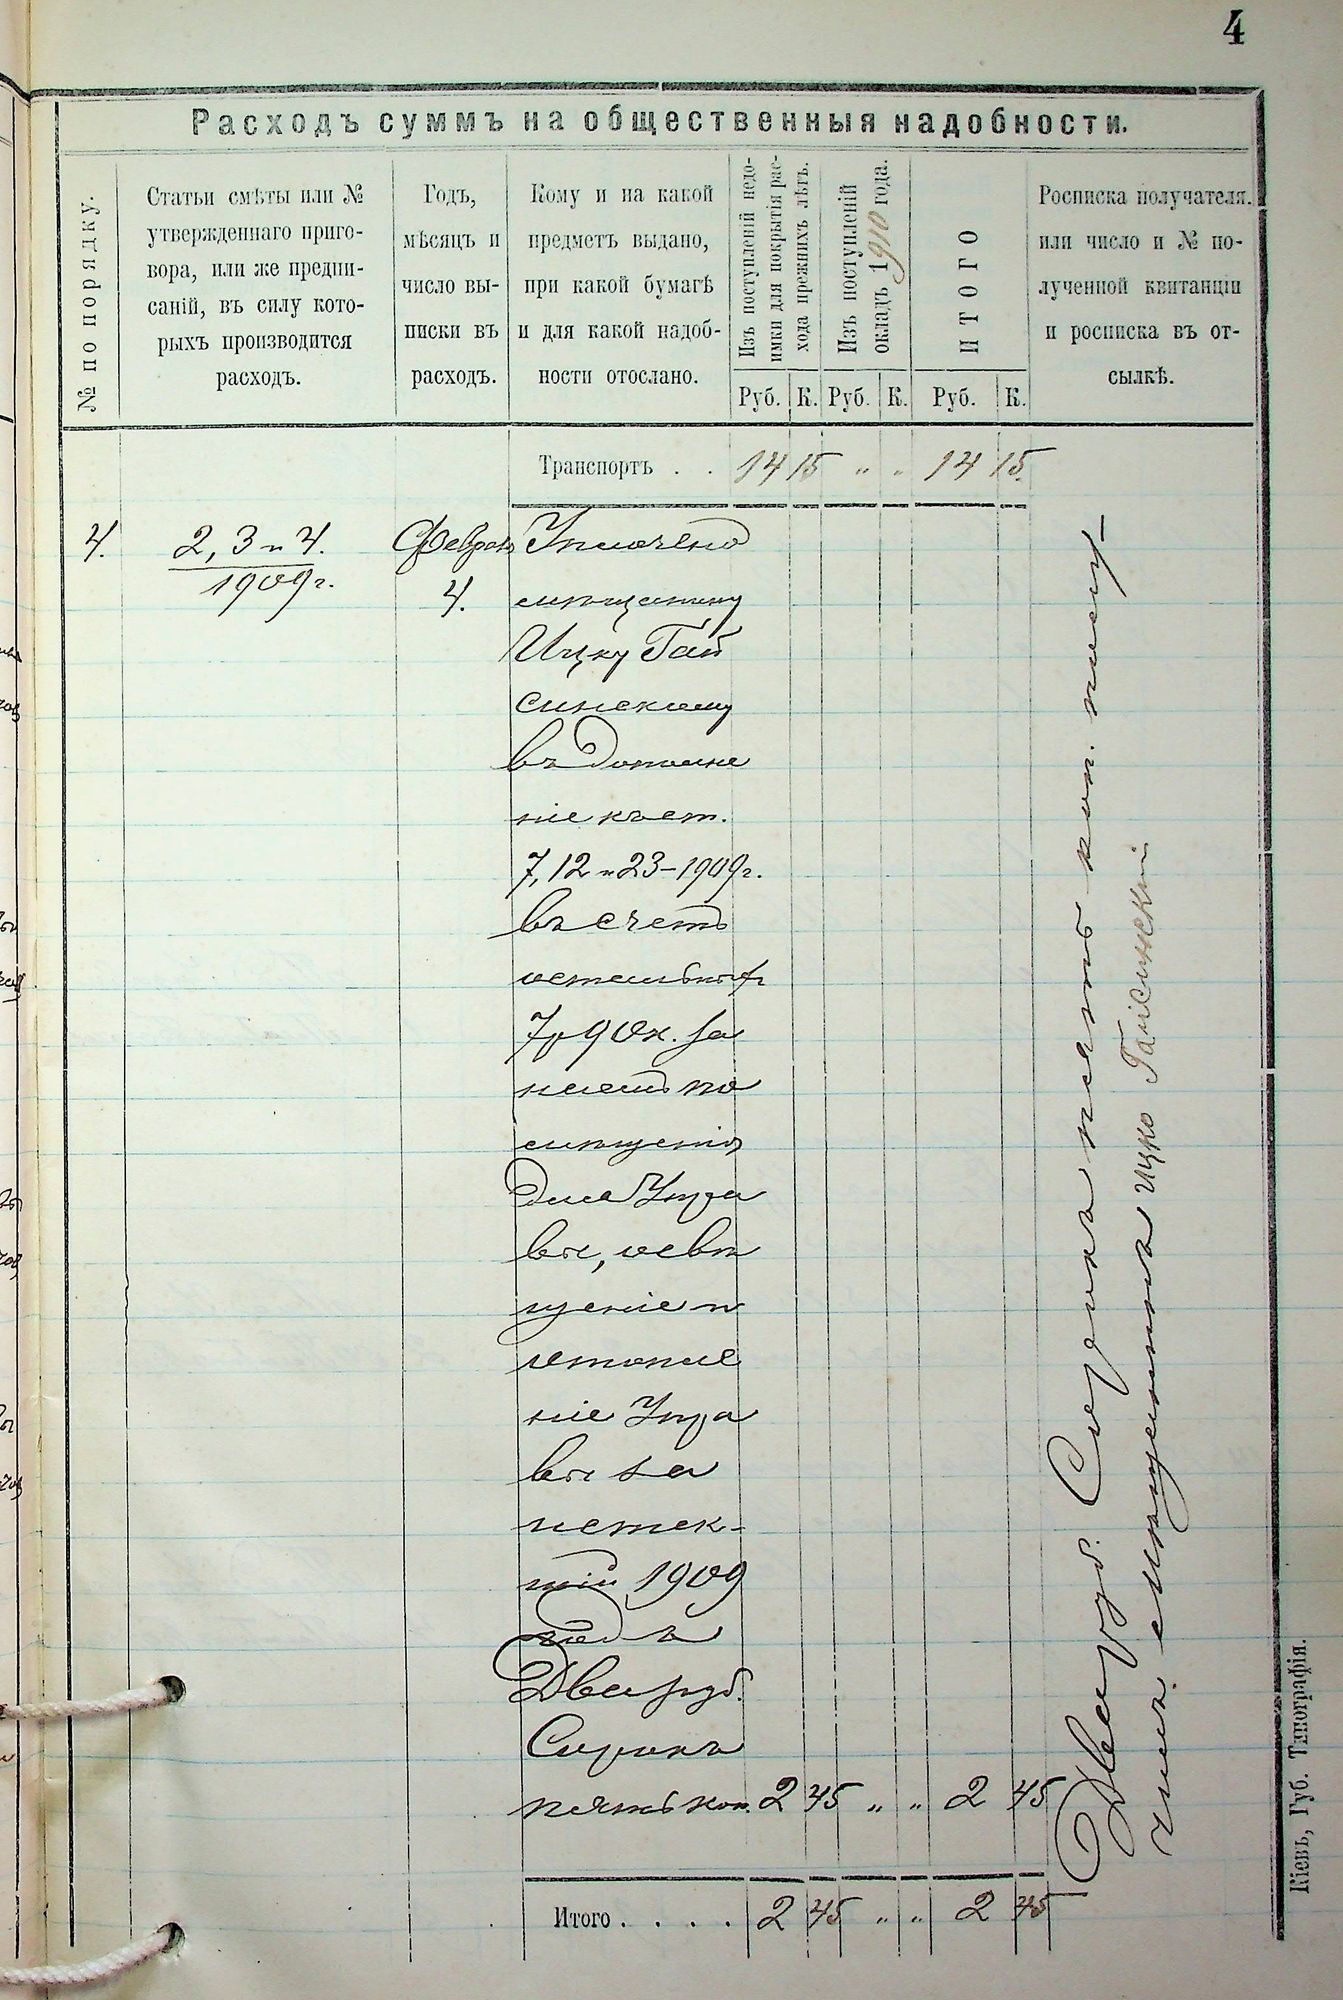 4
Расходъ суммъ на общественныя надобности.
№ по порядку.
Статьи смѣты или №
утвержденнаго приго-
вора, или же предпи-
саній, въ силу кото-
рыхъ производится
расходъ.
Годъ,
мѣсяцъ и
число вы-
писки въ
расходъ.
Кому и на какой
предметъ выдано,
при какой бумагѣ
и для какой надоб-
ности отослано.
Изъ поступленій недо-
имки для покрытія рас-
хода прежнихъ лѣтъ.
Изъ поступленій
окладъ 1910 года.
ИТОГО
Росписка получателя.
или число и № по-
лученной квитанціи
и росписка въ от-
сылкѣ.
Руб. К. Руб. К. Руб. К.
Транспортъ . . 14 15 „ „ 14 15.
4. 2, 3 и 4. Февраль Уплочено
1909 г. 4. мѣщанину
Ицку Гай
синскому
въ дополне
ніе къ ст.
7, 12 и 23-1909 г.
въ счетъ
остальныхъ
7 р 90 к. за
наемъ по
мѣщенія
для Упра
вы, освѣ
щеніе и
отопле
ніе Упра
вы за
истек-
шій 1909
годъ
Два руб.
Сорокъ
пять коп. 2 45 „ „ 2 45
Итого . . . . 2 45 „ „ 2 45
Два руб. Сорокъ пять коп. полу-
чилъ мѣщанинъ Ицко Гайсинскій
Кіевъ, Губ. Типографія.